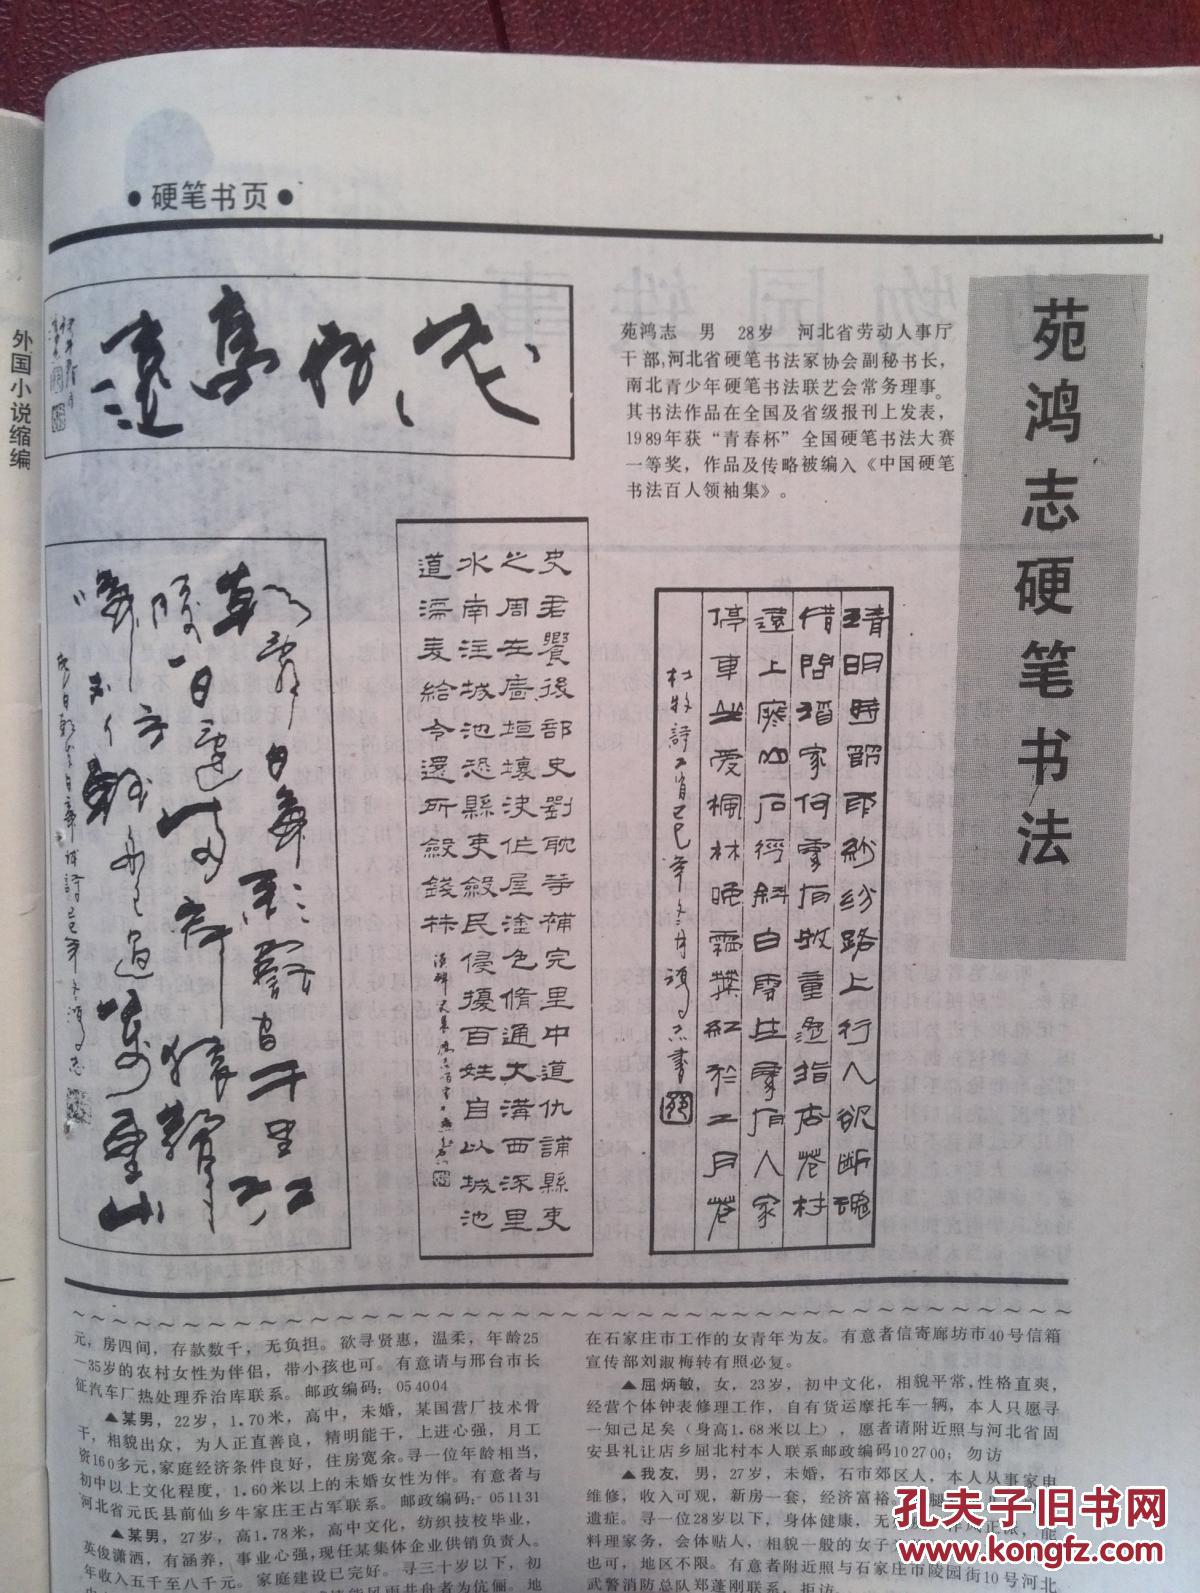 ●硬笔书页●
外国小说缩编
苑鸿志硬笔书法
苑鸿志 男 28岁 河北省劳动人事厅
干部,河北省硬笔书法家协会副秘书长,
南北青少年硬笔书法联艺会常务理事。
其书法作品在全国及省级报刊上发表,
1989年获“青春杯”全国硬笔书法大赛
一等奖,作品及传略被编入《中国硬笔
书法百人领袖集》。
清明時節雨紛紛路上行人欲断魂
借問酒家何處有牧童遥指杏花村
遠上寒山石徑斜白雲生處有人家
停車坐愛楓林晚霜葉紅於二月花
杜牧詩二首己巳年冬月鴻志書
史君饗後部史劉耽等補完里中道仇誧縣吏
之周左廧垣壞决作屋塗色脩通大溝西流里
水南注城池恐縣吏斂民侵擾百姓自以城池
道濡麦給令還所斂錢材
朝辭白帝彩雲間千里江
陵一日還两岸猿聲
啼不住輕舟已過萬重山
元,房四间,存款数千,无负担。欲寻贤惠,温柔,年龄25
—35岁的农村女性为伴侣,带小孩也可。有意请与邢台市长
征汽车厂热处理乔治库联系。邮政编码:054004
▲某男,22岁,1.70米,高中,未婚,某国营厂技术骨
干,相貌出众,为人正直善良,精明能干,上进心强,月工
资160多元,家庭经济条件良好,住房宽余。寻一位年龄相当,
初中以上文化程度,1.60米以上的未婚女性为伴。有意者与
河北省元氏县前仙乡牛家庄王占军联系。邮政编码:051131
▲某男,27岁,高1.78米,高中文化,纺织技校毕业,
英俊潇洒,有涵养,事业心强,现任某集体企业供销负责人。
年收入五千至八千元。家庭建设已完好。寻三十岁以下,初
在石家庄市工作的女青年为友。有意者信寄廊坊市40号信箱
宣传部刘淑梅转有照必复。
▲屈炳敏,女,23岁,初中文化,相貌平常,性格直爽,
经营个体钟表修理工作,自有货运摩托车一辆,本人只愿寻
一知己足矣(身高1.68米以上),愿者请附近照与河北省固
安县礼让店乡屈北村本人联系邮政编码102700;勿访
▲我友,男,27岁,未婚,石市郊区人,本人从事家电
维修,收入可观,新房一套,经济富裕。
遗症。寻一位28岁以下,身体健康,无
料理家务,会体贴人,相貌一般的女子
也可,地区不限。有意者附近照与石家庄市陵园街10号河北
武警消防总队郑蓬刚联系,拒访。
孔夫子旧书网
www.kongfz.com